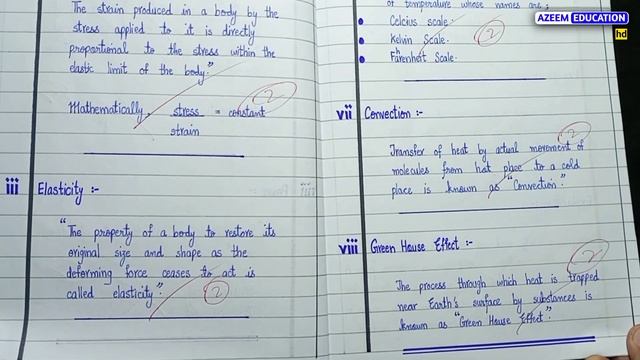 The strain produced in a body by the
stress applied to it is directly
proportional to the stress within the
elastic limit of the body."
Mathematically, stress = constant
strain
2
iii Elasticity :-
"The property of a body to restore its
original size and shape as the
deforming force ceases to act is
called elasticity."
2
of temperature whose names are;
• Celcius scale.
• Kelvin Scale.
• Farenheit Scale.
2
vii Convection :-
Transfer of heat by actual movement of
molecules from hot place to a cold
place is known as "Convection."
2
viii Green House Effect :-
The process through which heat is trapped
near Earth's surface by substances is
known as "Green House Effect".
2
AZEEM EDUCATION
hd